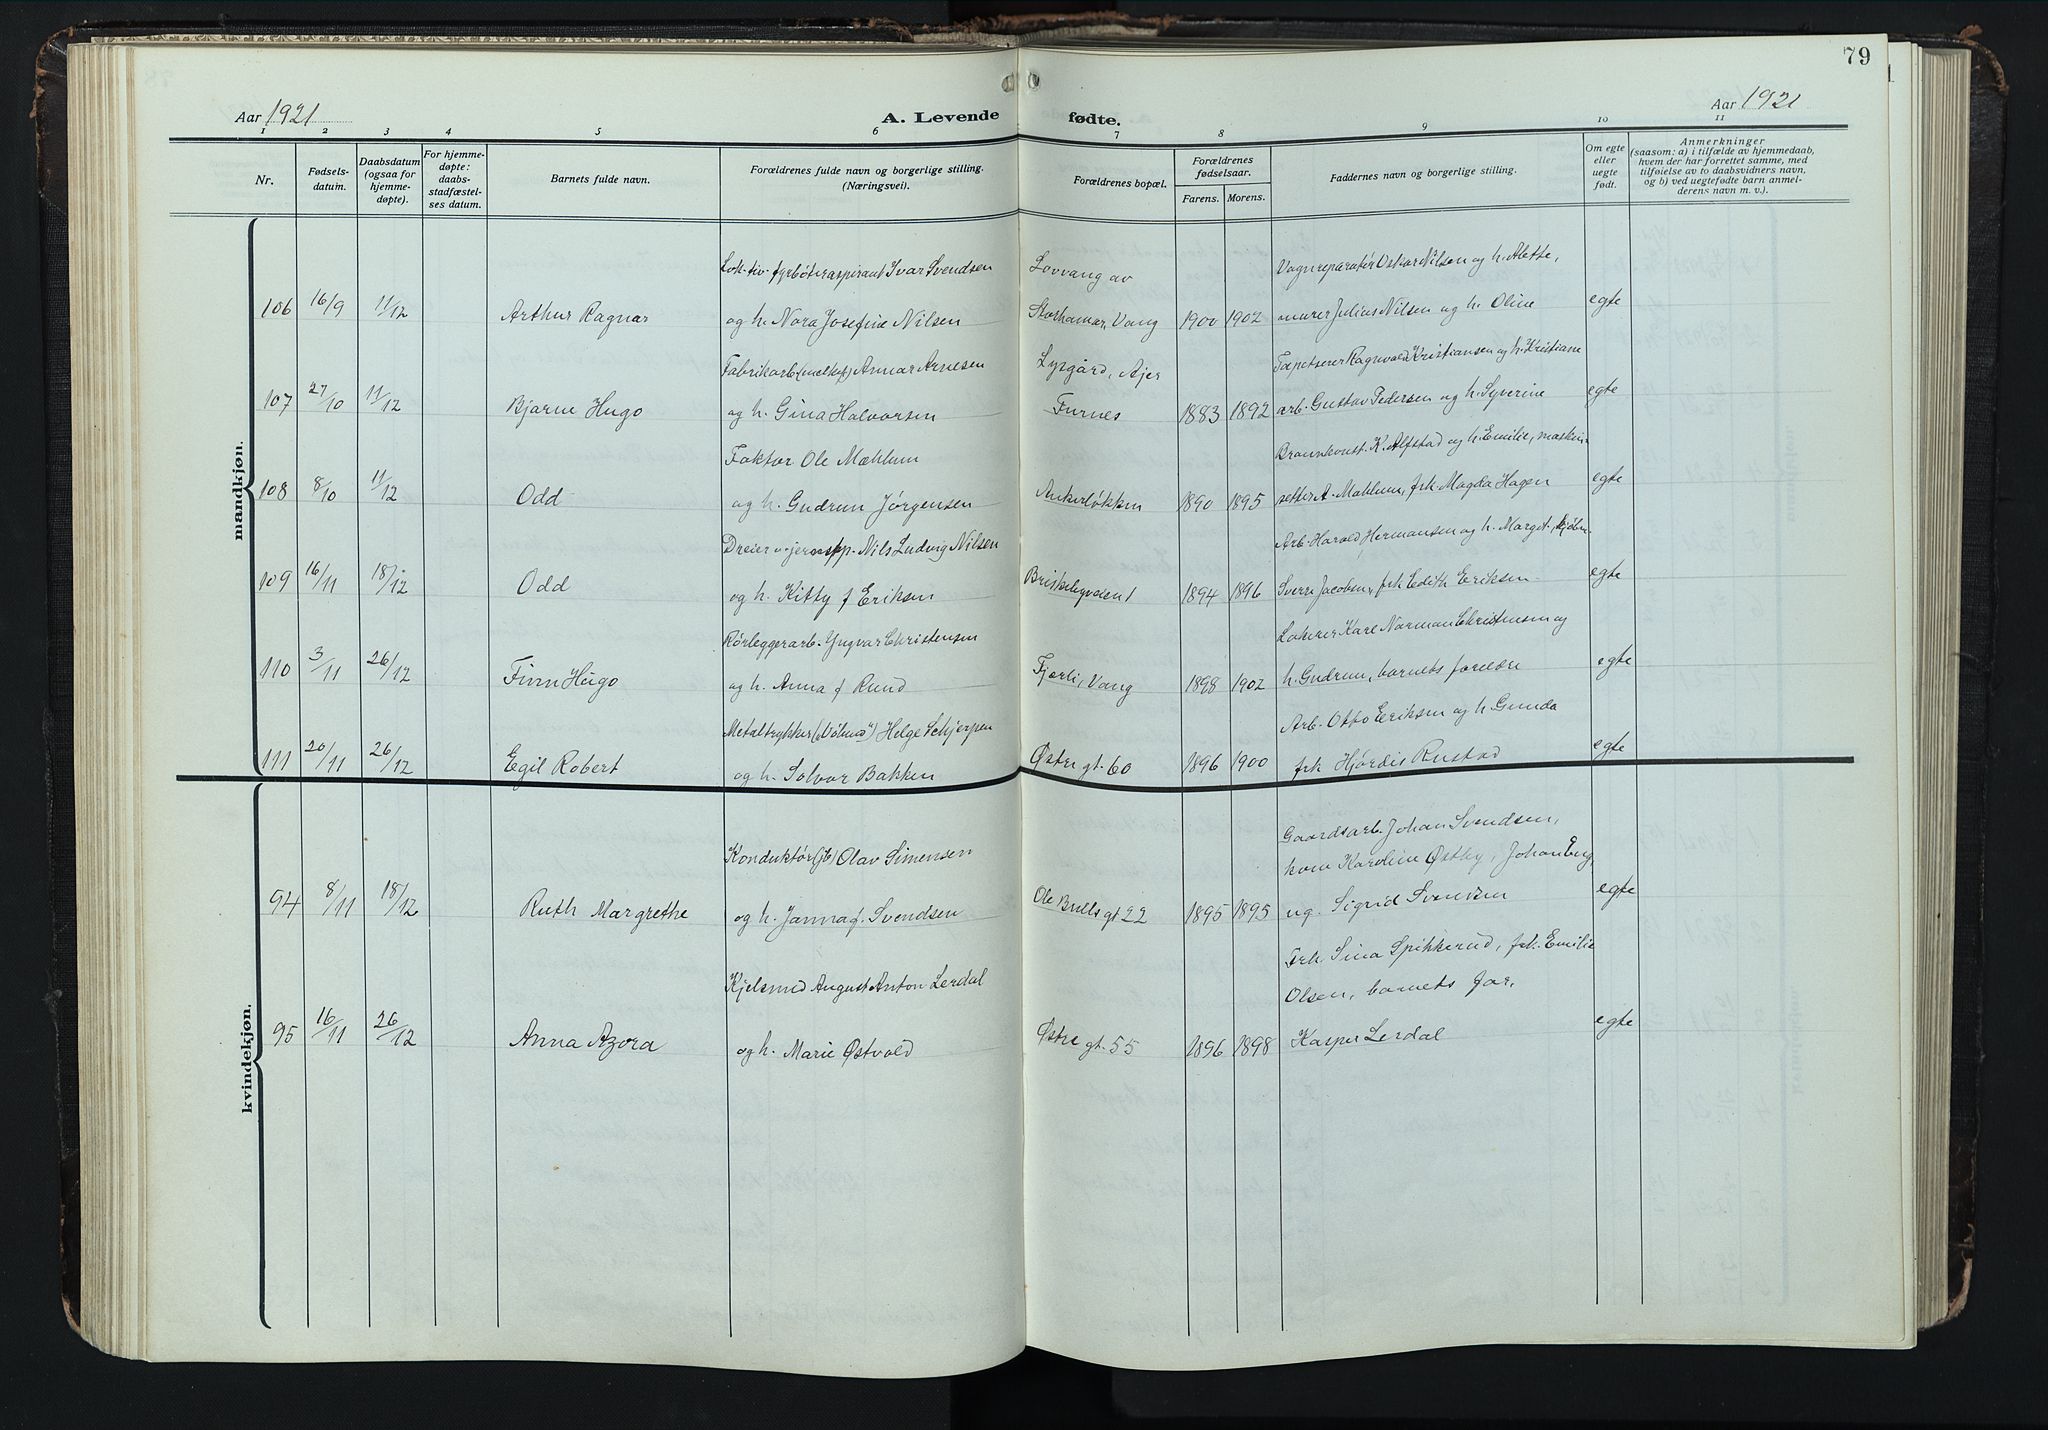 79
Aar 1921
A. Levende fødte.
Aar 1921
1 2 3 4 5 6 7 8 9 10 11
Nr.
Fødsels-
datum.
Daabsdatum
(ogsaa for
hjemme-
døpte).
For hjemme-
døpte:
daabs-
stadfæstel-
ses datum.
Barnets fulde navn.
Forældrenes fulde navn og borgerlige stilling.
(Næringsvei).
Forældrenes bopæl.
Forældrenes
fødselsaar.
Farens. Morens.
Faddernes navn og borgerlige stilling.
Om egte
eller
uegte
født.
Anmerkninger
(saasom: a) i tilfælde av hjemmedaab,
hvem der har forrettet samme, med
tilføielse av to daabsvidners navn,
og b) ved uegtefødte barn anmel-
derens navn m. v.).
mandkjøn.
Lok-tiv-fyrbøteraspirant Ivar Svendsen Lovvang av Vognreparatør Oskar Nilsen og h. Alette,
106 16/9 11/12 Arthur Ragnar og h. Nora Josefine Nilsen Storhamar, Vang 1900 1902 murer Julius Nilsen og h. Oline egte
Fabrikarb. (melkef) Annar Arnesen Lysgård, Ajer Tapetserer Ragnvald Kristiansen og h. Kristiane
107 27/10 11/12 Bjarne Hugo og h. Gina Halvorsen Furnes 1883 1892 arb. Gustav Pedersen og h. Syverine egte
Faktor Ole Mæhlum K. Alfstad og h. Emilie, maskin-
108 8/10 11/12 Odd og h. Gudrun Jørgensen Ankerløkken 1890 1895 setter A. Mæhlum, frk. Magda Hagen egte
Dreier v. jernstøp. Nils Ludvig Nilsen Arb. Harald Hermansen og h. Margit,
109 16/11 18/12 Odd og h. Kitty f Eriksen Briskebyveien 1 1894 1896 Sverre Jacobsen, frk Edith Eriksen egte
Rørleggerarb. Yngvar Christensen Lakerer Karl Norman Christensen og
110 3/11 26/12 Finn Hugo og h. Anna f Rund Fjorli, Vang 1898 1902 h. Gudrun, barnets forældre egte
Metaltrykker Helge Schjerpen Arb. Otto Eriksen og h Gunda
111 20/11 26/12 Egil Robert og h. Solvor Bakken Østre gt. 60 1896 1900 frk Hjørdis Rustad egte
kvindekjøn.
Gaardsarb. Johan Svendsen,
Konduktør (jb) Olav Simensen kone Karoline Østby, Johan Eng,
94 8/11 18/12 Ruth Margrethe og h. Janna f. Svendsen Ole Bulls gt 22 1895 1895 ug. Sigrid Svendsen egte
Frk. Sina Spikkerud, frk. Emilie
Kjelsmed August Anton Lerdal Olsen, barnets far,
95 16/11 26/12 Anna Azora og h. Marie Østvold Østre gt. 55 1896 1898 Kasper Lerdal egte